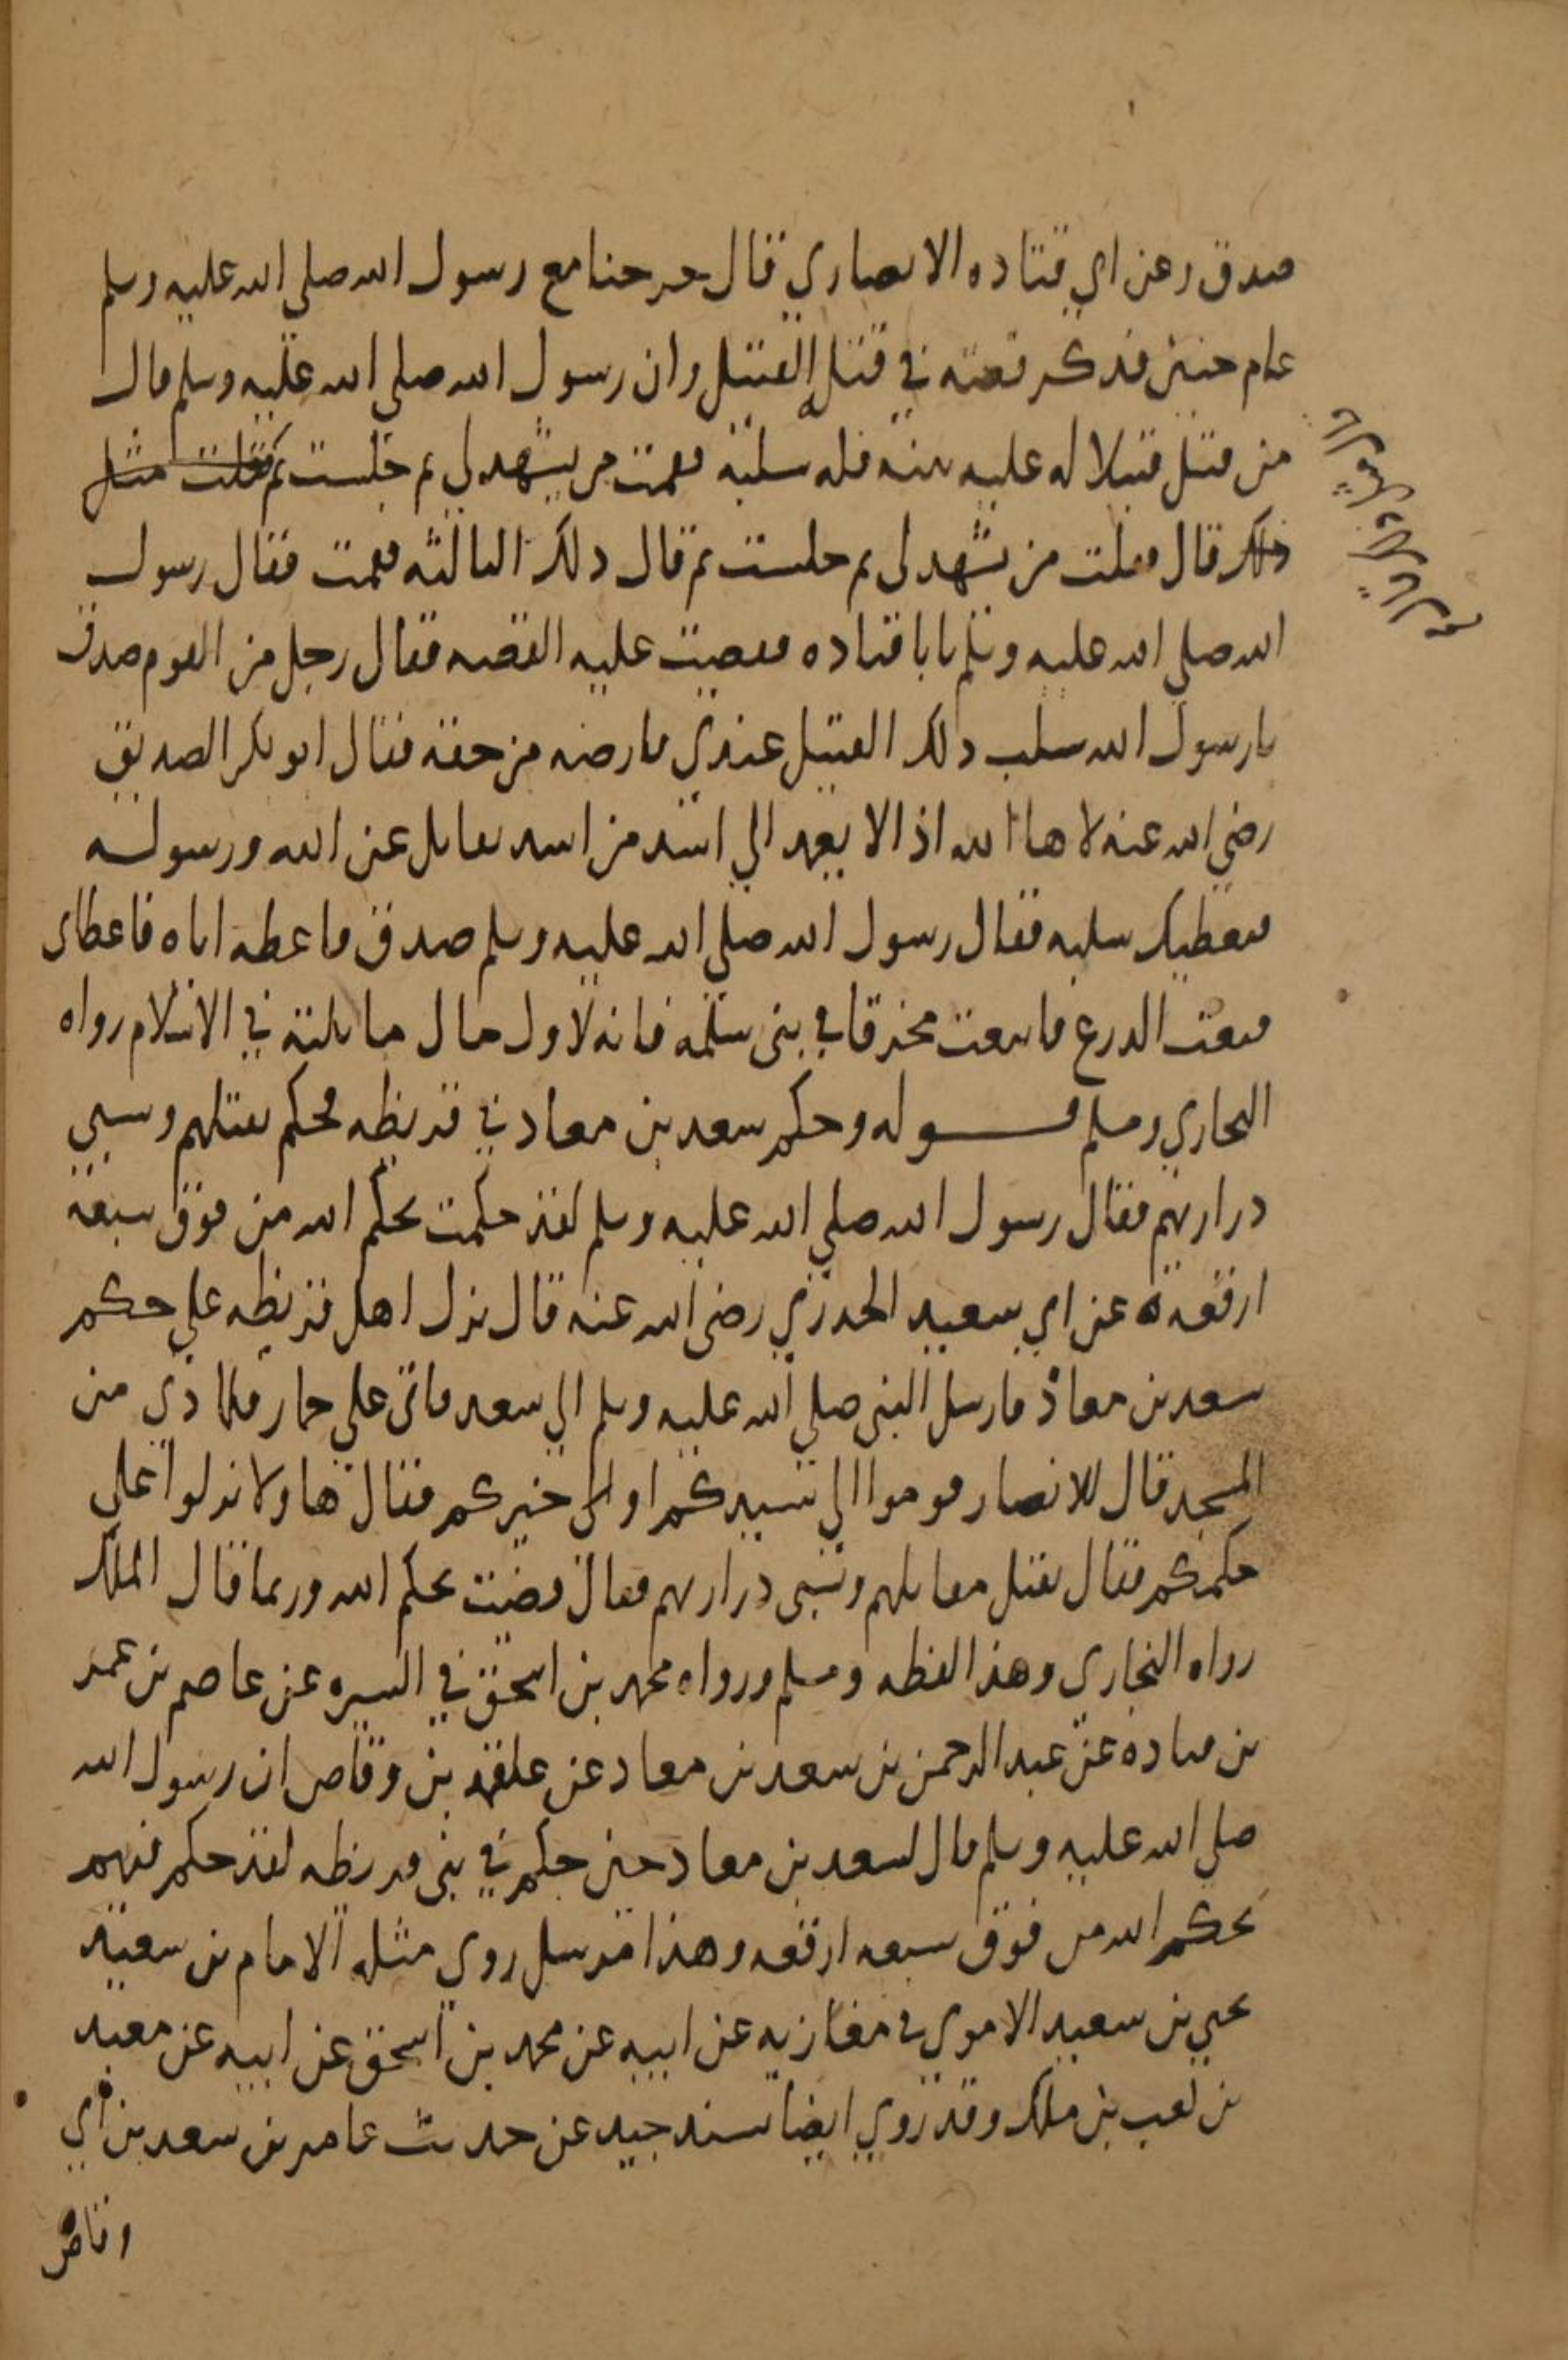 صدق وعن ابي قتاده الانصاري قال خرجنا مع رسول الله صلى الله عليه وسلم
عام حنين فذكر قصته في قتل القتيل وان رسول الله صلى الله عليه وسلم قال
من قتل قتيلا له عليه بينه فله سلبه فقمت من يشهد لي ثم جلست ثم فقلت مثل
ذلك قال فقلت من يشهد لي ثم جلست ثم قال ذلك الثالثه فقمت فقال رسول
الله صلى الله عليه وسلم يابا قتاده فقصيت عليه القصه فقال رجل من القوم صدق
يا رسول الله سلب ذلك القتيل عندي فارضه من حقه فقال ابو بكر الصديق
رضي الله عنه لا ها الله اذ الا يعمد الي اسد من اسد يقاتل عن الله ورسوله
فيعطيك سلبه فقال رسول الله صلى الله عليه وسلم صدق فاعطه اياه فاعطاى
فبعت الدرع فابتعت مخرفا في بني سلمه فانه لاول مال تاثلته في الاسلام رواه
البخاري ومسلم قوله وحكم سعد بن معاد في قريظه فحكم بقتلهم وسبي
دراريهم فقال رسول الله صلى الله عليه وسلم لقد حكمت بحكم الله من فوق سبعة
ارقعة عن ابي سعيد الخدري رضي الله عنه قال نزل اهل قريظه علي حكم
سعد بن معاذ فارسل النبي صلى الله عليه وسلم الي سعد فاتي علي حمار فلما دني من
المسجد قال للانصار قوموا الي سيدكم او الى خيركم فقال هاولا نزلوا على
حكمكم فقال نقتل مقاتلهم ونسبي دراريهم فقال قضيت بحكم الله وربما قال الملك
رواه البخاري وهذا لفظه ومسلم ورواه محمد بن اسحق في السيره عن عاصم بن عمر
بن قتاده عن عبد الرحمن بن سعد بن معاد عن علقمه بن وقاص ان رسول الله
صلى الله عليه وسلم قال لسعد بن معاد حين حكم في بني قريظه لقد حكم فيهم
بحكم الله من فوق سبعه ارقعه وهذا مرسل روي مثله الامام بن سعيد
يحيي بن سعيد الاموي في مغازيه عن ابيه عن محمد بن اسحق عن ابيه عن معبد
بن كعب بن ملك وقد روي ايضا بسند جيد عن حديث عامر بن سعد بن ابي
وقاص